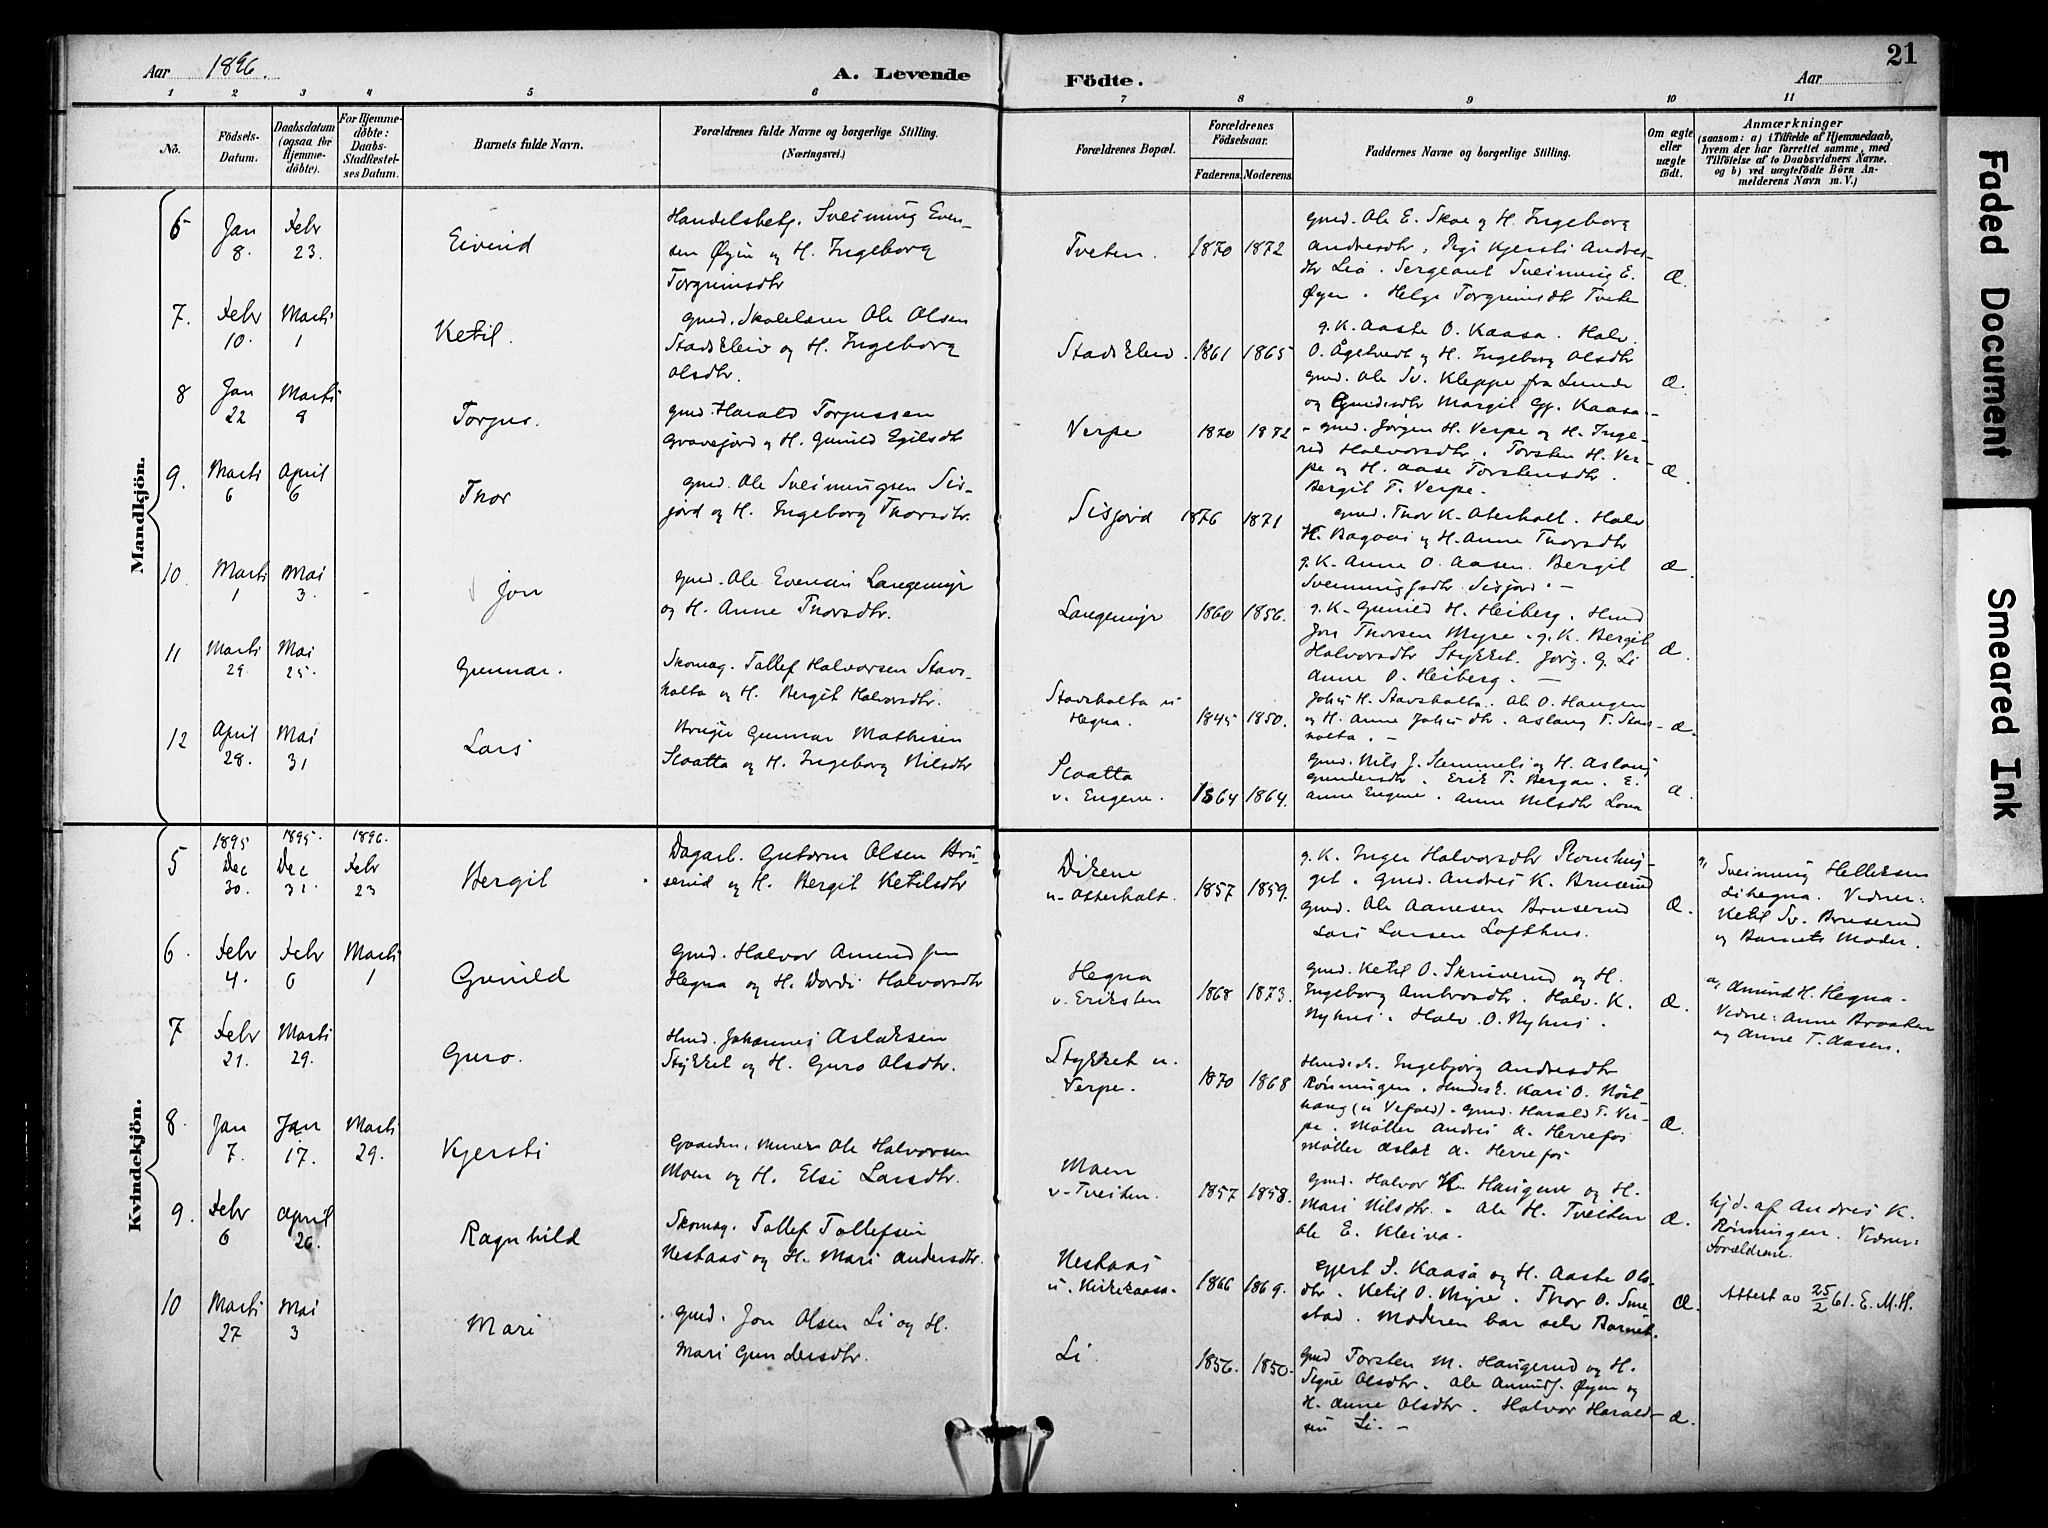 Aar 1896.
A. Levende
Födte.
Aar
21
1
2
3
4
5
6
7
8
9
10
11
No.
Födsels-
Datum.
Daabsdatum
(ogsaa for
Hjemme-
døbte).
For Hjemme-
døbte:
Daabs-
Stadfæstel-
ses Datum.
Barnets fulde Navn.
Forældrenes fulde Navne og borgerlige Stilling.
(Næringsvei.)
Forældrenes Bopæl.
Forældrenes
Födselsaar.
Faderens. Moderens.
Faddernes Navne og borgerlige Stilling.
Om ægte
eller
uægte
født.
Anmærkninger
(saasom: a) i Tilfælde af Hjemmedaab,
hvem der har forrettet samme, med
Tilføielse af to Daabsvidners Navne,
og b) ved uægtefødte Börn An-
melderens Navn m. V.)
Mandkjön.
6
Jan
8.
Febr
23.
Eivind
Handelsbetj. Sveinung Even-
sen Øyen og H. Ingeborg
Torgrimsdtr
Tveten.
1870
1872
gmd. Ole E. Skoe og H. Ingeborg
Andresdtr. Pige Kjersti Andres-
dtr Lia. Sergeant Sveinung E.
Øyen. Helge Torgrimsdtr Tveten
Æ.
7.
Febr
10.
Marti
1
Ketil.
gmd. Skolelærer Ole Olsen
Stadskleiv og H. Ingeborg
Olsdtr.
Stadskleiv.
1861
1865
g. K. Aaste O. Kaasa. Halv.
O. Ågetvedt og H. Ingeborg Olsdtr
gmd. Ole Sv. Kleppe fra Lunde
og Margit Gj. Kaasa.
Æ.
8
Jan
22
Marti
8
Torjus.
gmd. Harald Torjussen
Gravejord og H. Gunild Egilsdtr
Verpe
1870
1872
gmd. Jørgen H. Verpe og H. Inge-
red Halvorsdtr. Torsten H. Ver-
pe og H. Aase Torstensdtr.
Bergit T. Verpe.
Æ.
9.
Marti
6
April
6
Thor
gmd. Ole Sveinungsen Sis-
jord og H. Ingeborg Thorsdtr.
Sisjord
1876
1871
gmd. Thor K. Oterholt. Halv
H. Bagaas og H. Anne Thorsdtr
g. K. Anne O. Aasen. Bergit
Sveinungsdtr Sisjord. —
Æ.
10.
Marti
1
Mai
3.
Jon
gmd. Ole Evensen Langemyr
og H. Anne Thorsdtr.
Langemyr
1860
1856.
g. K. Gunild H. Heiberg. Hmd
Jon Thorsen Myre. g. K. Bergit
Halvorsdtr Stykket. Jørg. G. Li
Anne O. Heiberg. —
Æ.
11
Marti
29.
Mai
25.
Gunnar.
Skomag. Tollef Halvorsen Stavs-
holta og H. Bergit Halvorsdtr.
Stavsholta u
Hegna.
1845
1850.
Johs H. Stavsholta. Ole O. Haugen
og H. Anne Johs dtr. Aslaug T. Stavs-
holta. —
Æ.
12
April
28.
Mai
31
Lars
Gunnar Mathisen
Slaatta og H. Ingeborg Nilsdtr
Slaatta
v. Eugene.
1864
1864.
gmd. Nils J. Semmeli og H. Aslaug
Gundersdtr. Erik T. Bergan. E.
Anne Eugene. Anne Nilsdtr Lona
Æ.
Kvindekjön.
5
1895
Dec
30.
1895.
Dec
31.
1896.
Febr
23
Bergit
Dagarb. Gutorm Olsen Bru-
serud og H. Bergit Ketilsdtr
Dikene
u. Otterholt.
1857
1859.
g. K. Inger Halvorsdtr Romhug-
get. Gmd. Andres K. Bruserud
gmd. Ole Aanesen Bruserud
Lars Larsen Lofthus.
Æ.
a, Sveinung Helleksen
Lihegna. Vidner:
Ketil Sv. Bruserud
og Barnets Moder.
6.
Febr
4.
Febr
6
Marti
1
Gunild
gmd. Halvor Amundsen
Hegna og H. Dordi Halvorsdtr
Hegna
v. Eriksten
1868
1873.
gmd. Ketil O. Skruverud og H.
Ingeborg Ambrosdtr. Halv. K.
Nyhus. Halv. O. Nyhus.
Æ.
a, Amund H. Hegna.
Vidne: Anne Braaten
og Anne T. Aasen.
7
Febr
21.
Marti
29.
Guro.
Hmd. Johannes Aslaksen
Stykket og H. Guro Olsdtr.
Stykket u.
Verpe.
1870
1868
Ingebjørg Andresdtr
Rønningen. Kari O. Nøst-
haug (u Vefald). gmd. Harald T. Ver-
pe. Møller Andres A. Herrefos
Møller Aslak A. Herrefos
Æ.
8.
Jan
7.
Jan
17.
Marti
29.
Kjersti
Gaardm. murer Ole Halvorsen
Moen og H. Else Larsdtr.
Moen
v. Tveiten.
1857
1858.
gmd. Halvor K. Haugene og H.
Mari Nilsdtr. Ole H. Tveiten
Ole E. Kleiva.
Æ.
hjd. af Andres K.
Rønningen. Vidner:
Forældrene.
9.
Febr
6
April
26.
Ragnhild
Skomag. Tollef Tollefsen
Neshaas og H. Mari Andersdtr.
Neshaas
u. Kirkekaasa.
1866
1869.
Gjert S. Kaasa og H. Aaste Ols-
dtr. Ketil O. Myre. Thor O. Sme-
stad. Moderen bar selv Barnet.
Æ.
Attert av 25/2 61. E. M. H.
10
Marti
27
Mai
3
Mari
gmd. Jon Olsen Li og H.
Mari Gundersdtr.
Li.
1856.
1850.
gmd Torsten M. Haugerud og H.
Signe Olsdtr. Ole Amunds. Øyen og
H. Anne Olsdtr. Halvor Harald-
sen Li. —
Æ.
Faded Document
Smeared Ink